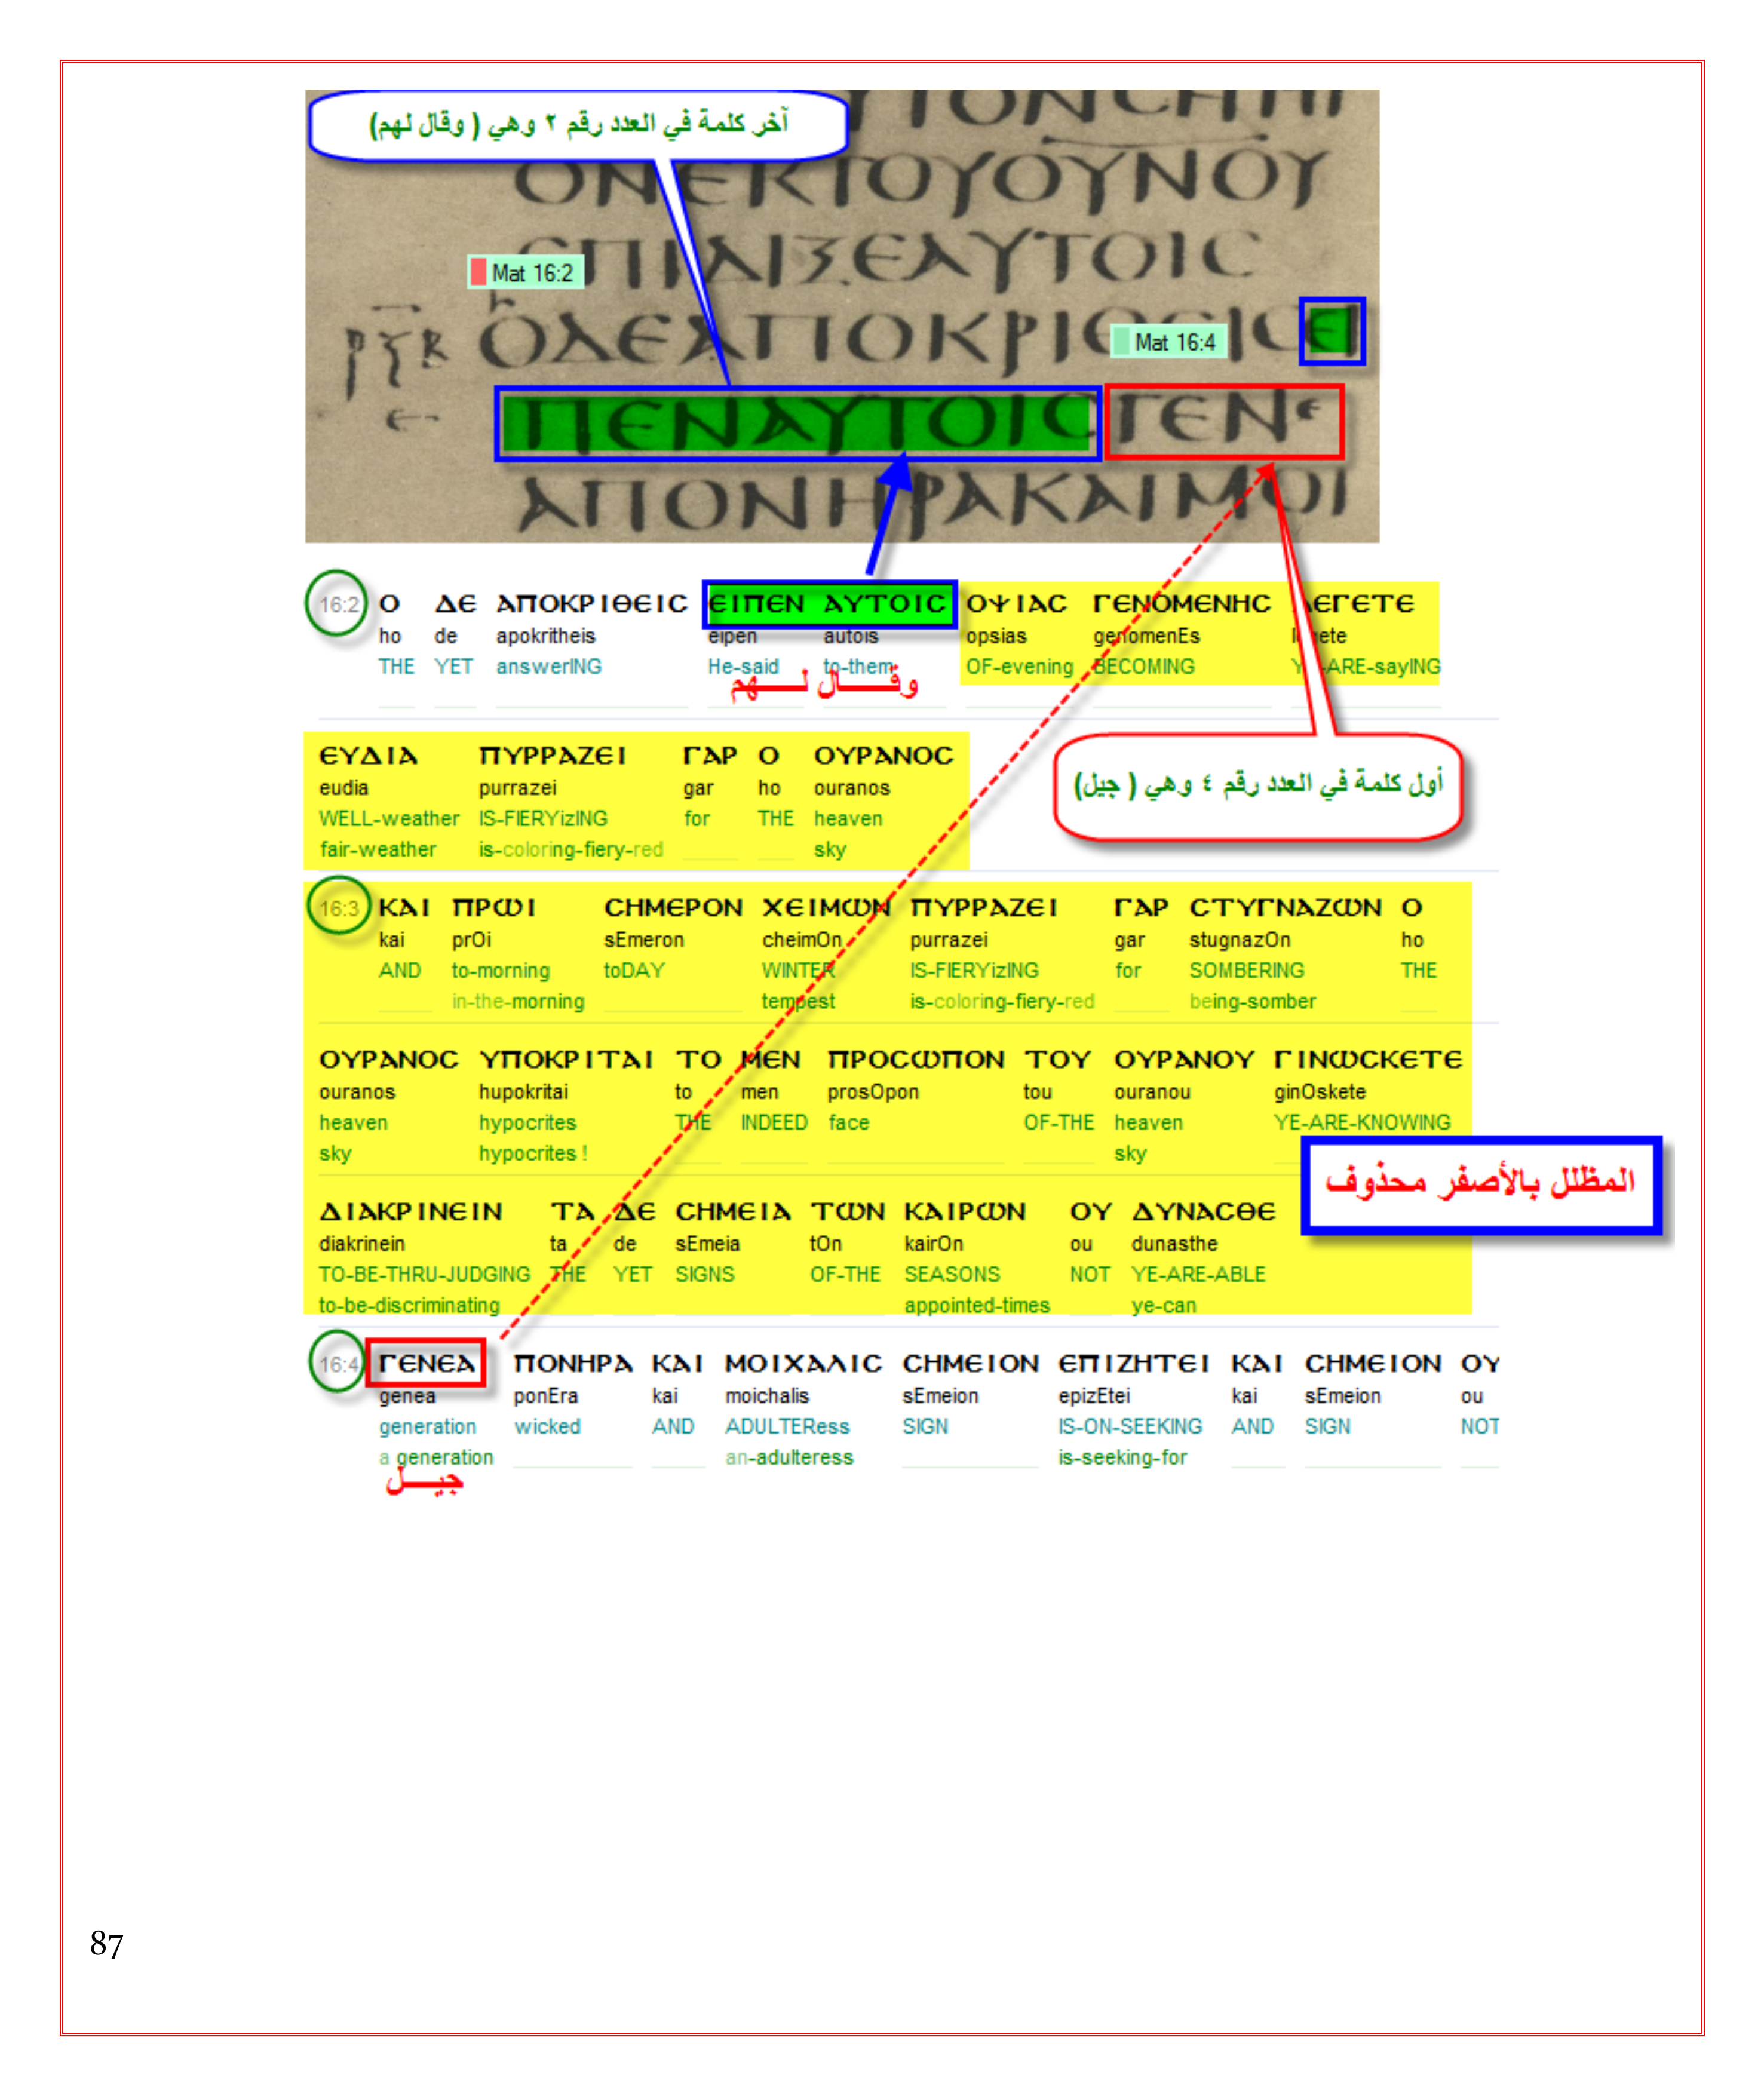 آخر كلمة في العدد رقم ٢ وهي ( وقال لهم)
ΟΝΕΚΤΟΥΟΥΝΟΥ
ΕΠΙΔΙΞΕΑΥΤΟΙϹ
Mat 16:2
ΟΔΕΑΠΟΚΡΙΘΕΙϹΕΙ
Mat 16:4
ΠΕΝΑΥΤΟΙϹΓΕΝΕ
ΑΠΟΝΗΡΑΚΑΙΜΟΙ
16:2 Ο ΔΕ ΑΠΟΚΡΙΘΕΙϹ ΕΙΠΕΝ ΑΥΤΟΙϹ ΟΨΙΑϹ ΓΕΝΟΜΕΝΗϹ ΛΕΓΕΤΕ
ho de apokritheis eipen autois opsias genomenEs legete
THE YET answerING He-said to-them OF-evening BECOMING YE-ARE-sayING
وقــــال لــــهم
ΕΥΔΙΑ ΠΥΡΡΑΖΕΙ ΓΑΡ Ο ΟΥΡΑΝΟϹ
eudia purrazei gar ho ouranos
WELL-weather IS-FIERYizING for THE heaven
fair-weather is-coloring-fiery-red sky
أول كلمة في العدد رقم ٤ وهي ( جيل)
16:3 ΚΑΙ ΠΡΩΙ ϹΗΜΕΡΟΝ ΧΕΙΜΩΝ ΠΥΡΡΑΖΕΙ ΓΑΡ ϹΤΥΓΝΑΖΩΝ Ο
kai prOi sEmeron cheimOn purrazei gar stugnazOn ho
AND to-morning toDAY WINTER IS-FIERYizING for SOMBERING THE
in-the-morning tempest is-coloring-fiery-red being-somber
ΟΥΡΑΝΟϹ ΥΠΟΚΡΙΤΑΙ ΤΟ ΜΕΝ ΠΡΟϹΩΠΟΝ ΤΟΥ ΟΥΡΑΝΟΥ ΓΙΝΩϹΚΕΤΕ
ouranos hupokritai to men prosOpon tou ouranou ginOskete
heaven hypocrites THE INDEED face OF-THE heaven YE-ARE-KNOWING
sky hypocrites ! sky
المظلل بالأصفر محذوف
ΔΙΑΚΡΙΝΕΙΝ ΤΑ ΔΕ ϹΗΜΕΙΑ ΤΩΝ ΚΑΙΡΩΝ ΟΥ ΔΥΝΑϹΘΕ
diakrinein ta de sEmeia tOn kairOn ou dunasthe
TO-BE-THRU-JUDGING THE YET SIGNS OF-THE SEASONS NOT YE-ARE-ABLE
to-be-discriminating appointed-times ye-can
16:4 ΓΕΝΕΑ ΠΟΝΗΡΑ ΚΑΙ ΜΟΙΧΑΛΙϹ ϹΗΜΕΙΟΝ ΕΠΙΖΗΤΕΙ ΚΑΙ ϹΗΜΕΙΟΝ ΟΥ
genea ponEra kai moichalis sEmeion epizEtei kai sEmeion ou
generation wicked AND ADULTERess SIGN IS-ON-SEEKING AND SIGN NOT
a generation an-adulteress is-seeking-for
جيــل
87